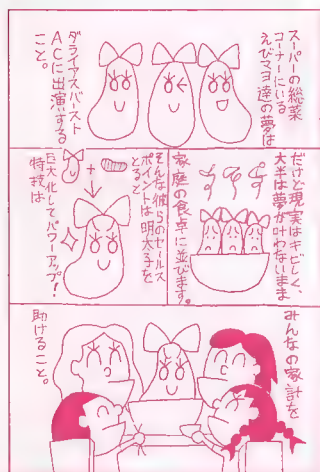 スーパーの総菜
コーナーにいる
えびマヨ達の夢は
ダライアスバースト
ACに出演する
こと。
だけど現実はキビしく、
大半は夢が叶わないまま
家庭の食卓に並びます。
そんな彼らのセールス
ポイントは明太子を
とると
巨大化してパワーアップ!
特技は
みんなの家計を
助けること。